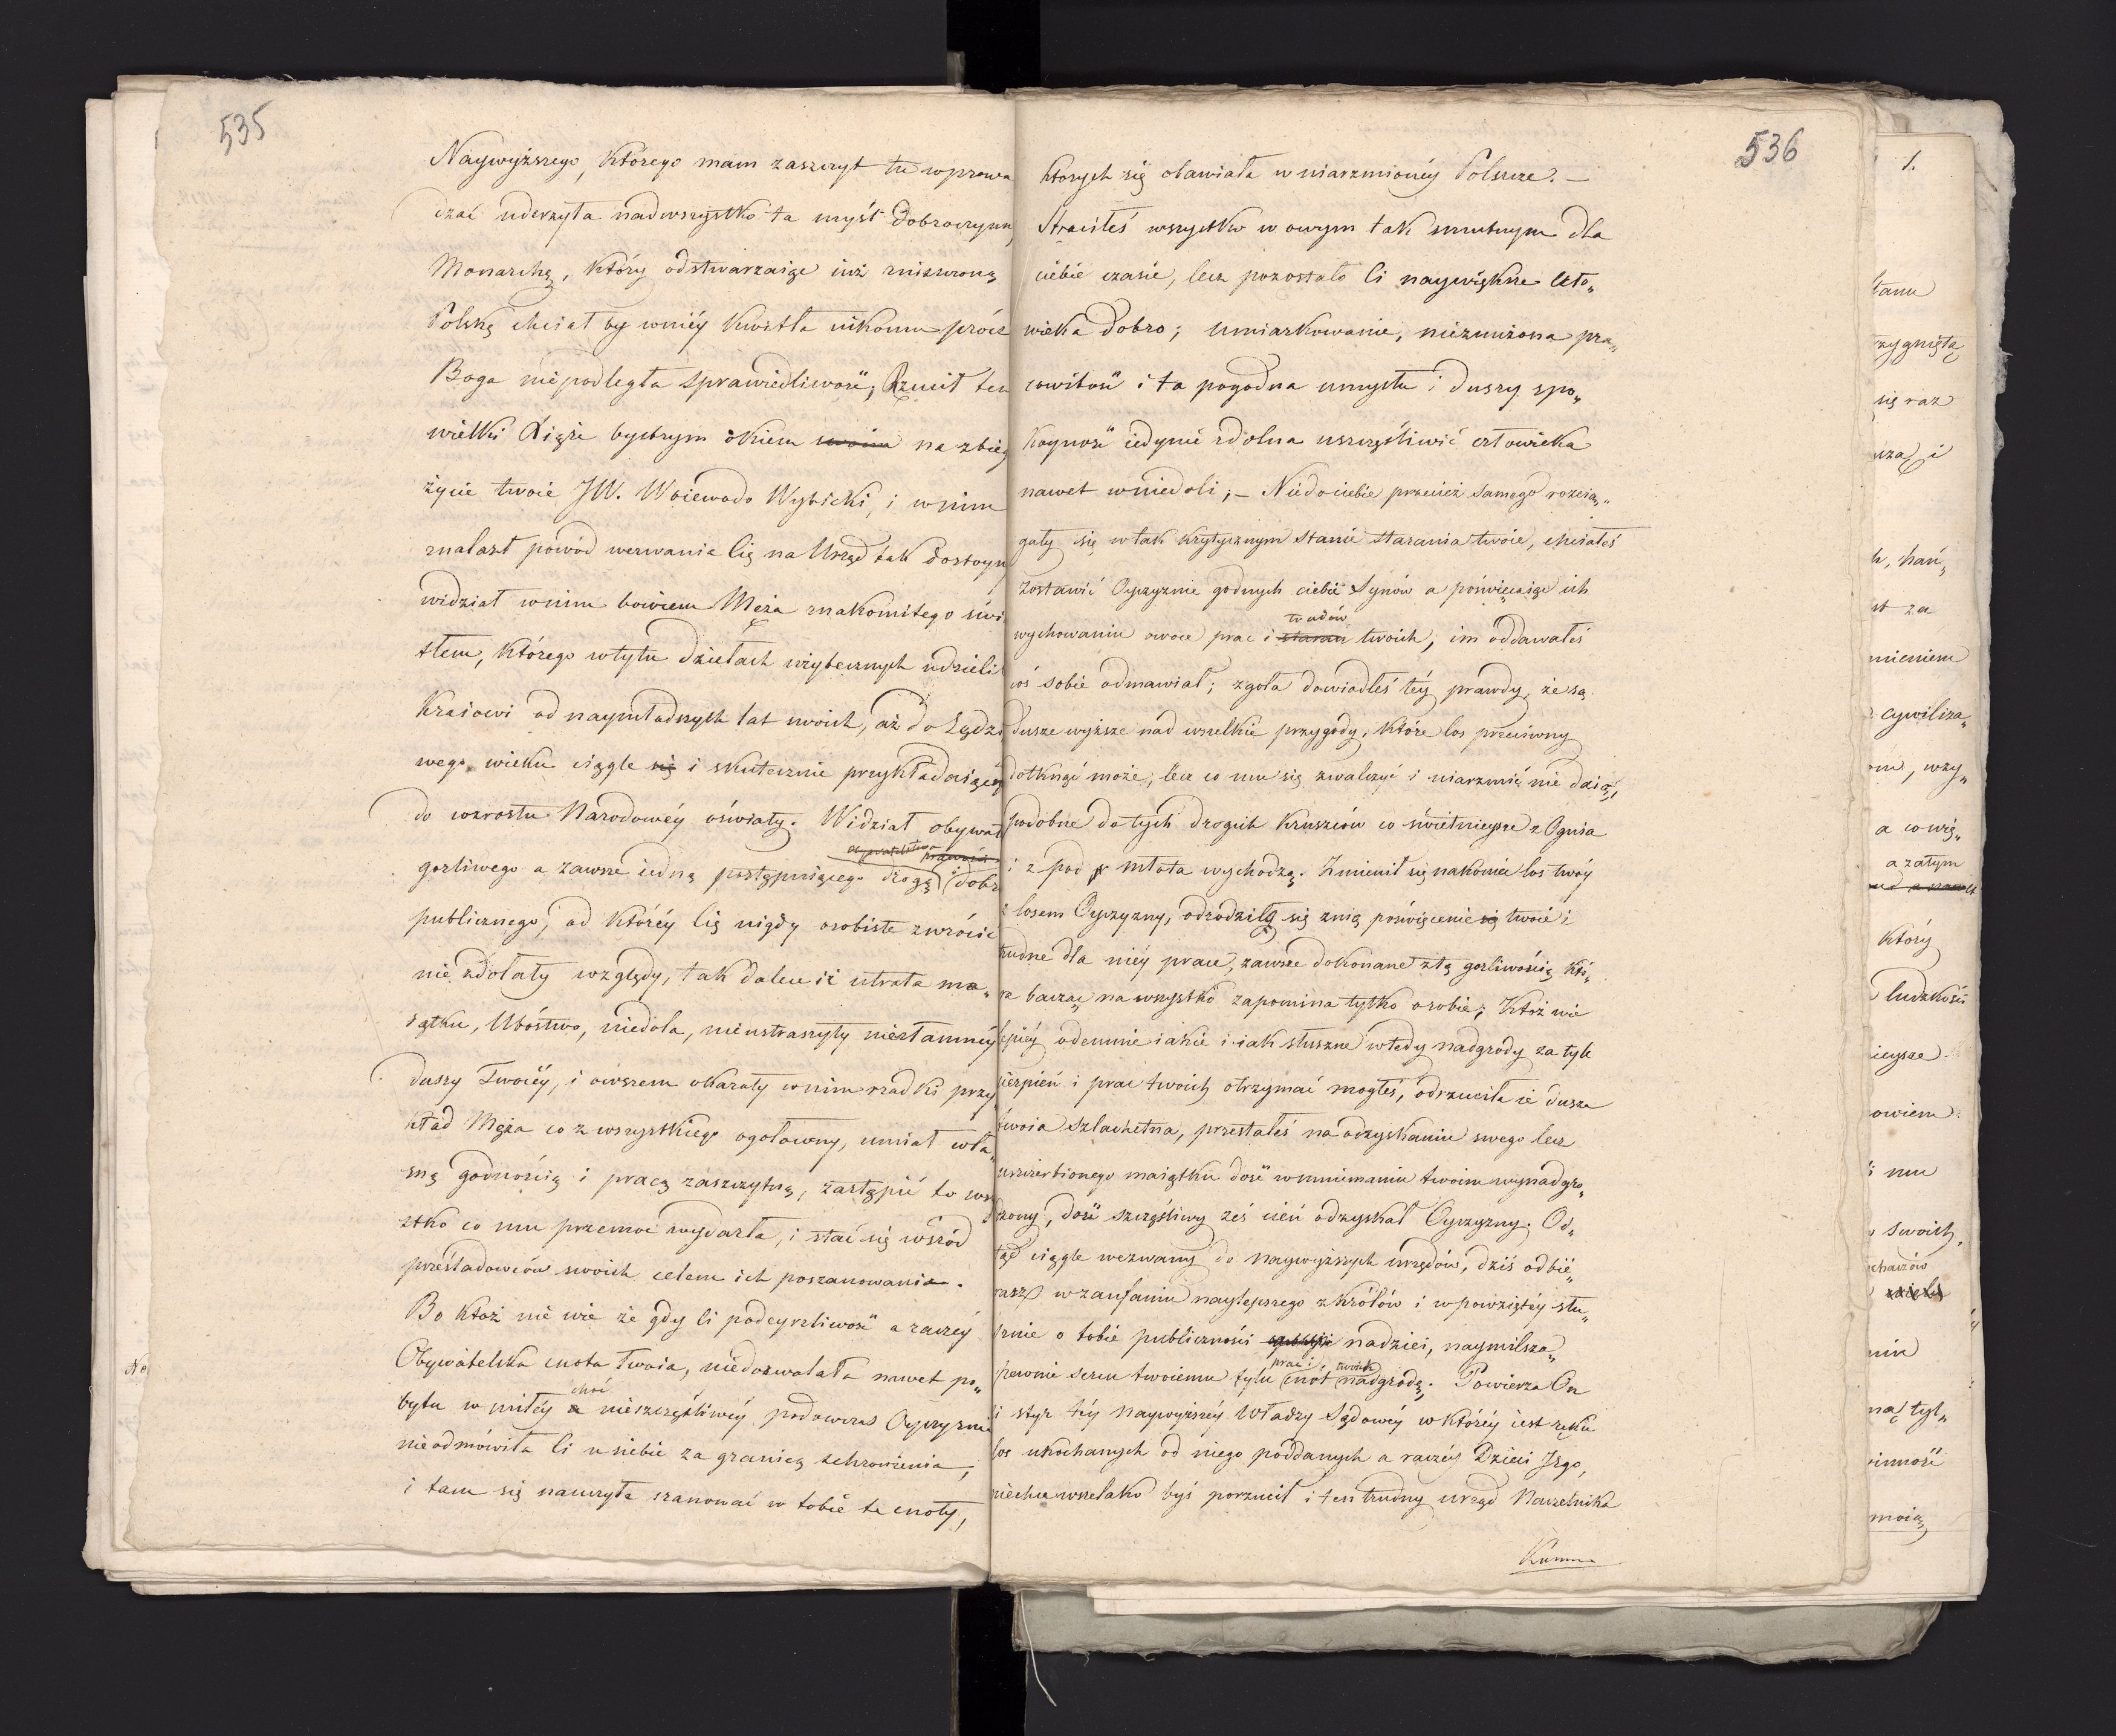 535
Naywyższego, którego mam zaszczyt tu wprowa
dzać uderzyła nadwszystko ta myśl Dobroczynn
Monarchę, który odstwarzaiąc iuż zniszczoną
Polskę chciał by wniéy kwitła nikomu prócz
Boga niepodległa Sprawiedliwość; Rzucił ten
wielki Xiąże bystrym okiem swoim na zbieg
życie twoie JW. Woiewodo Wybicki, i w nim
znalazł powód wezwania Cię na Urząd tak dostoyn
widział wnim bowiem Męża znakomitego świ
tłem, którego wtylu dziełach użytecznych udzieli
Kraiowi od naymłodszych lat swoich, aż do Sędzi
wego wieku ciągle się i skutecznie przykładaiącég
do wzrostu Narodowéy oświaty. Widział obywat
obywatelstwa prawości
gorliwego a zawsze iedną postępuiącego drogą dobr
publicznego, od któréy Cię nigdy osobiste zwrócić
nie zdołały względy, tak dalece iż utrata ma„
iątku, Ubóstwo, niedola, nieustraszyły niezłamnéy
duszy Twoiéy, i owszem okazały wnim rzadki przy
kład Męża co z wszystkiego ogołocony, umiał wła„
sną godnością i pracą zaszczytną, zastąpić to wsz
stko co mu przemoc wydarła, i stać się wśród
prześladowców swoich celem ich poszanowania.
Bo któż nie wie że gdy Ci podeyrzliwość a raczéy
Obywatelska cnota Twoia, niedozwalała nawet po„
choć
bytu w miłéy a nieszczęśliwéy podowczas Oyczyznie
nieodmówiła Ci u siebie za granicą schronienia,
i tam się nauczyła szanować w tobie te cnoty,
536
których się obawiała w uiarzmionéy Polszcze. —
Straciłeś wszystko w owym tak smutnym dla
ciebie czasie, lecz pozostało Ci naywiększe czło„
wieka dobro; umiarkowanie, niezmużona pra„
cowitość i ta pogodna umysłu i duszy spo„
koyność iedynie zdolna uszczęśliwić człowieka
nawet wniedoli; — Niedociebie przecież samego rozcią„
gały się w tak krytycznym stanie starania twoie, chciałeś
zostawić Oyczyznie godnych ciebie Synów a poświęcaiąc ich
trudów
wychowaniu owoce prac i starań twoich, im oddawałeś
coś sobie odmawiał; zgoła dowiodłeś téy prawdy, że są
dusze wyższe nad wszelkie przygody, które los przeciwny
dotknąć może, lecz co mu się zwalczyć i uiarzmić nie daią,
podobne do tych drogich kruszców co świetnieysze z Ognia
i z pod młota wychodzą. Zmienił się nakoniec los twóy
z losem Oyczyzny, odrodziły się znią poświęcenie się twoie i
trudne dla niéy prace, zawsze dokonane z tą gorliwością któ„
ra bacząc na wszystko zapomina tylko o sobie; Któż wie
lepiéy odemnie iakie i iak słuszne wtedy nadgrody za tyle
cierpień i prac twoich otrzymać mogłeś, odrzuciła ie dusza
twoia szlachetna, przestałeś na odzyskaniu swego lecz
uszczerbionego maiątku dość w mniemaniu twoim wynadgro„
dzony, dość szczęśliwy żeś cień odzyskał Oyczyzny. Od„
tąd ciągle wezwany do naywyższych urzędów, dziś odbie„
rasz w zaufaniu naylepszego z Królów i w powziętéy słu„
sznie o tobie publiczności nadziei, naymilszą„
prac i, twoich
pewnie sercu twoiemu tylu cnot nadgrodę. Powierza On
i styr téy naywyższéy Władzy Sądowéy w któréy iest ręku
los ukochanych od niego poddanych a raczéy Dzieci Jego,
niechce wszelako byś porzucił i ten trudny urząd Naczelnika
1.